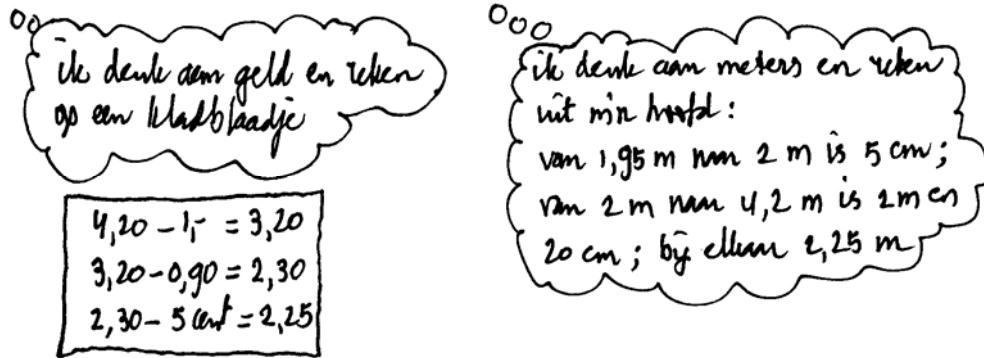 ik denk aan geld en reken
op een kladblaadje
4,20 – 1,- = 3,20
3,20 – 0,90 = 2,30
2,30 – 5 cent = 2,25
ik denk aan meters en reken
uit m'n hoofd:
van 1,95 m naar 2 m is 5 cm;
van 2 m naar 4,2 m is 2 m en
20 cm; bij elkaar 2,25 m